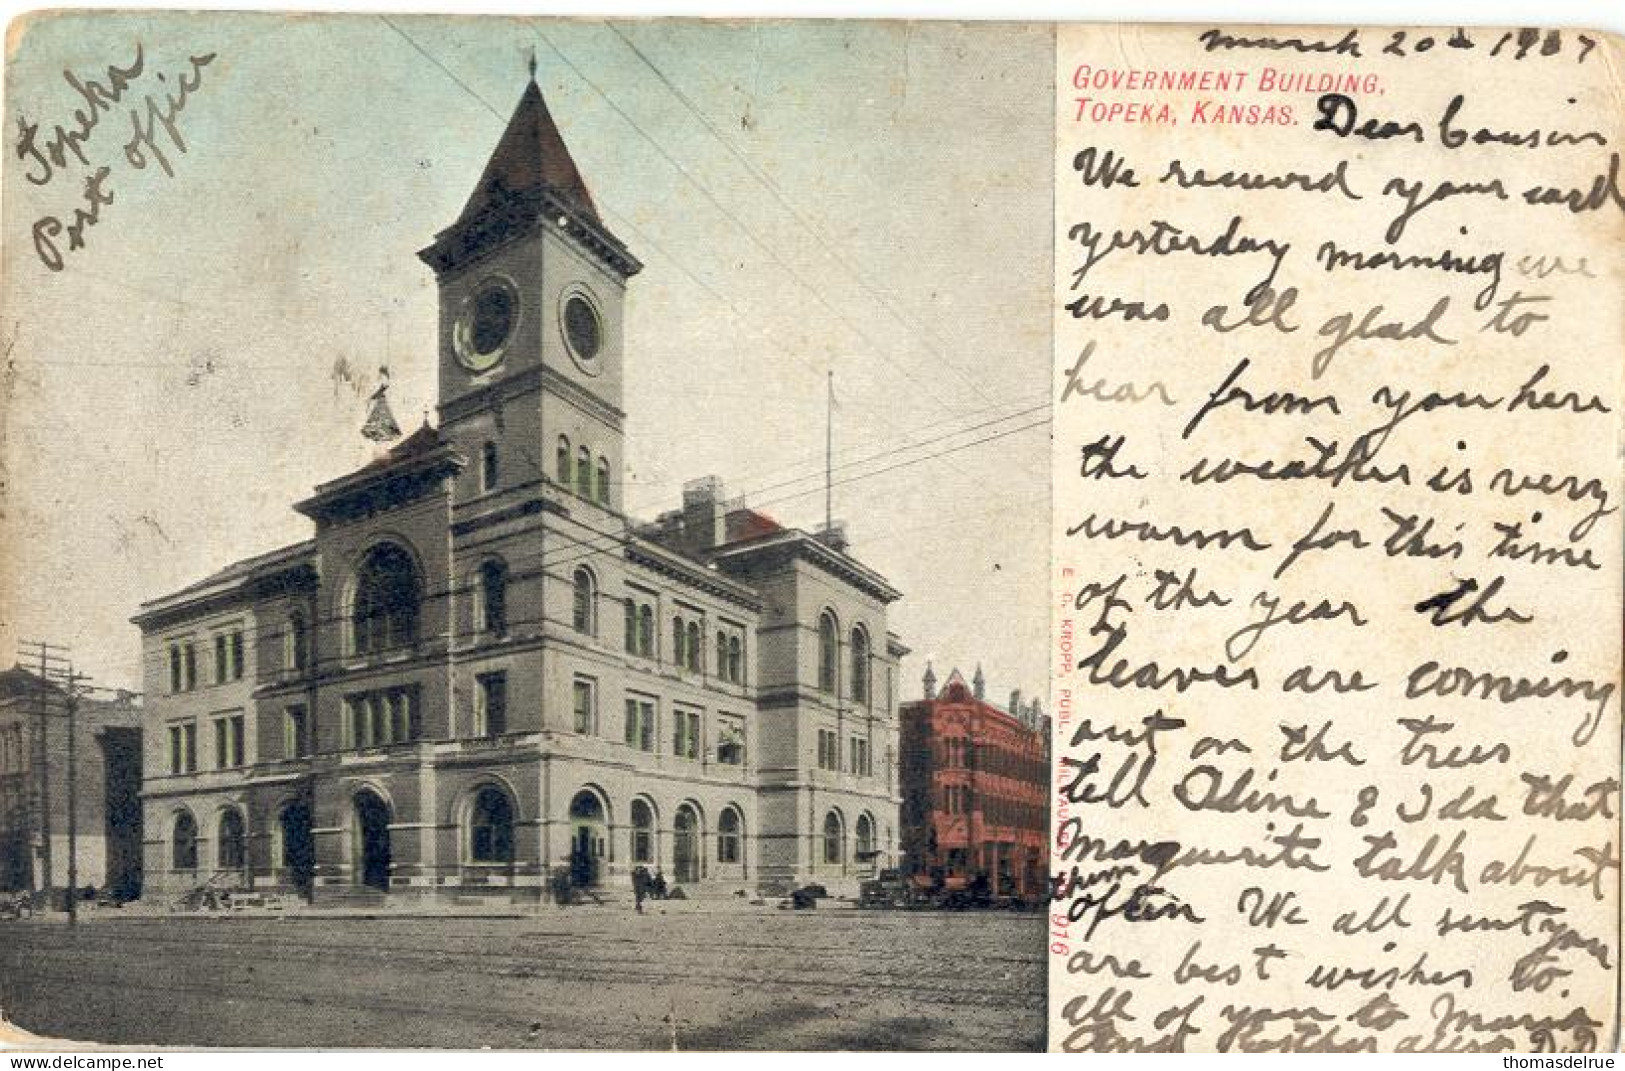 Topeka
Post office
march 20th 1907
GOVERNMENT BUILDING,
TOPEKA, KANSAS.
Dear Cousin
We received your card
yesterday morning we
was all glad to
hear from you here
the weather is very
warm for this time
of the year the
leaves are comeing
out on the trees
tell Aline & Ida that
Marguerite talk about
them
often We all sent you
are best wishes to
all of you to Maria
And
also D.D.
E. G. KROPP, PUBL., MILWAUKEE
916
delcampe.net
thomasdelrue